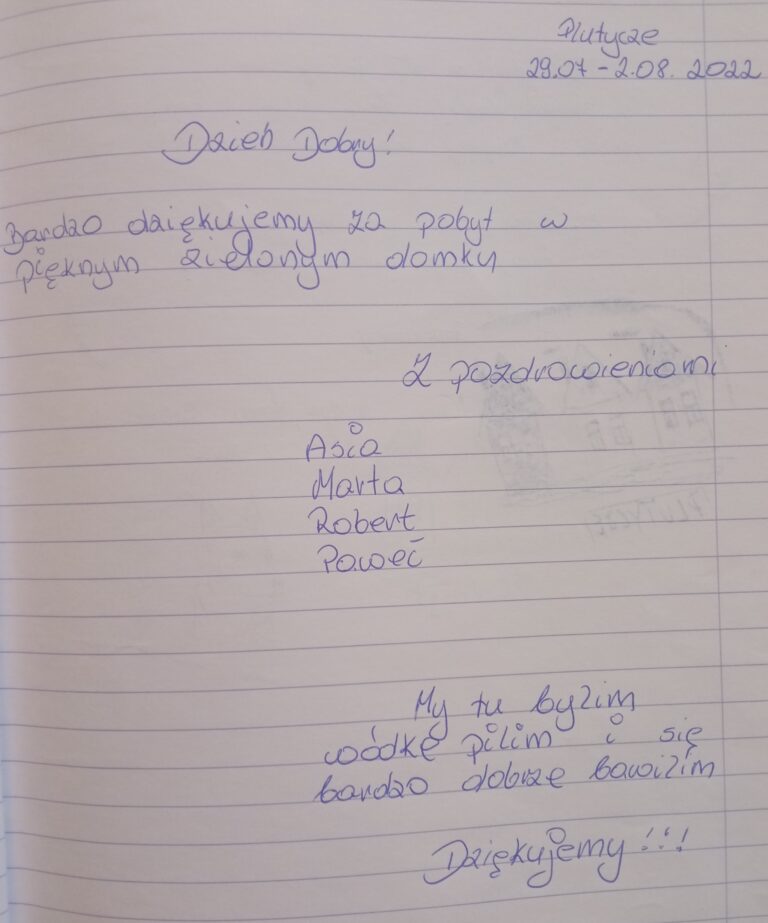 Plutycze
29.07 - 2.08. 2022
Dzień Dobry!
Bardzo dziękujemy za pobyt w
pięknym zielonym domku
Z pozdrowieniami
Asia
Marta
Robert
Paweł
My tu bylim
wódkę pilim i się
bardzo dobrze bawilim
Dziękujemy!!!